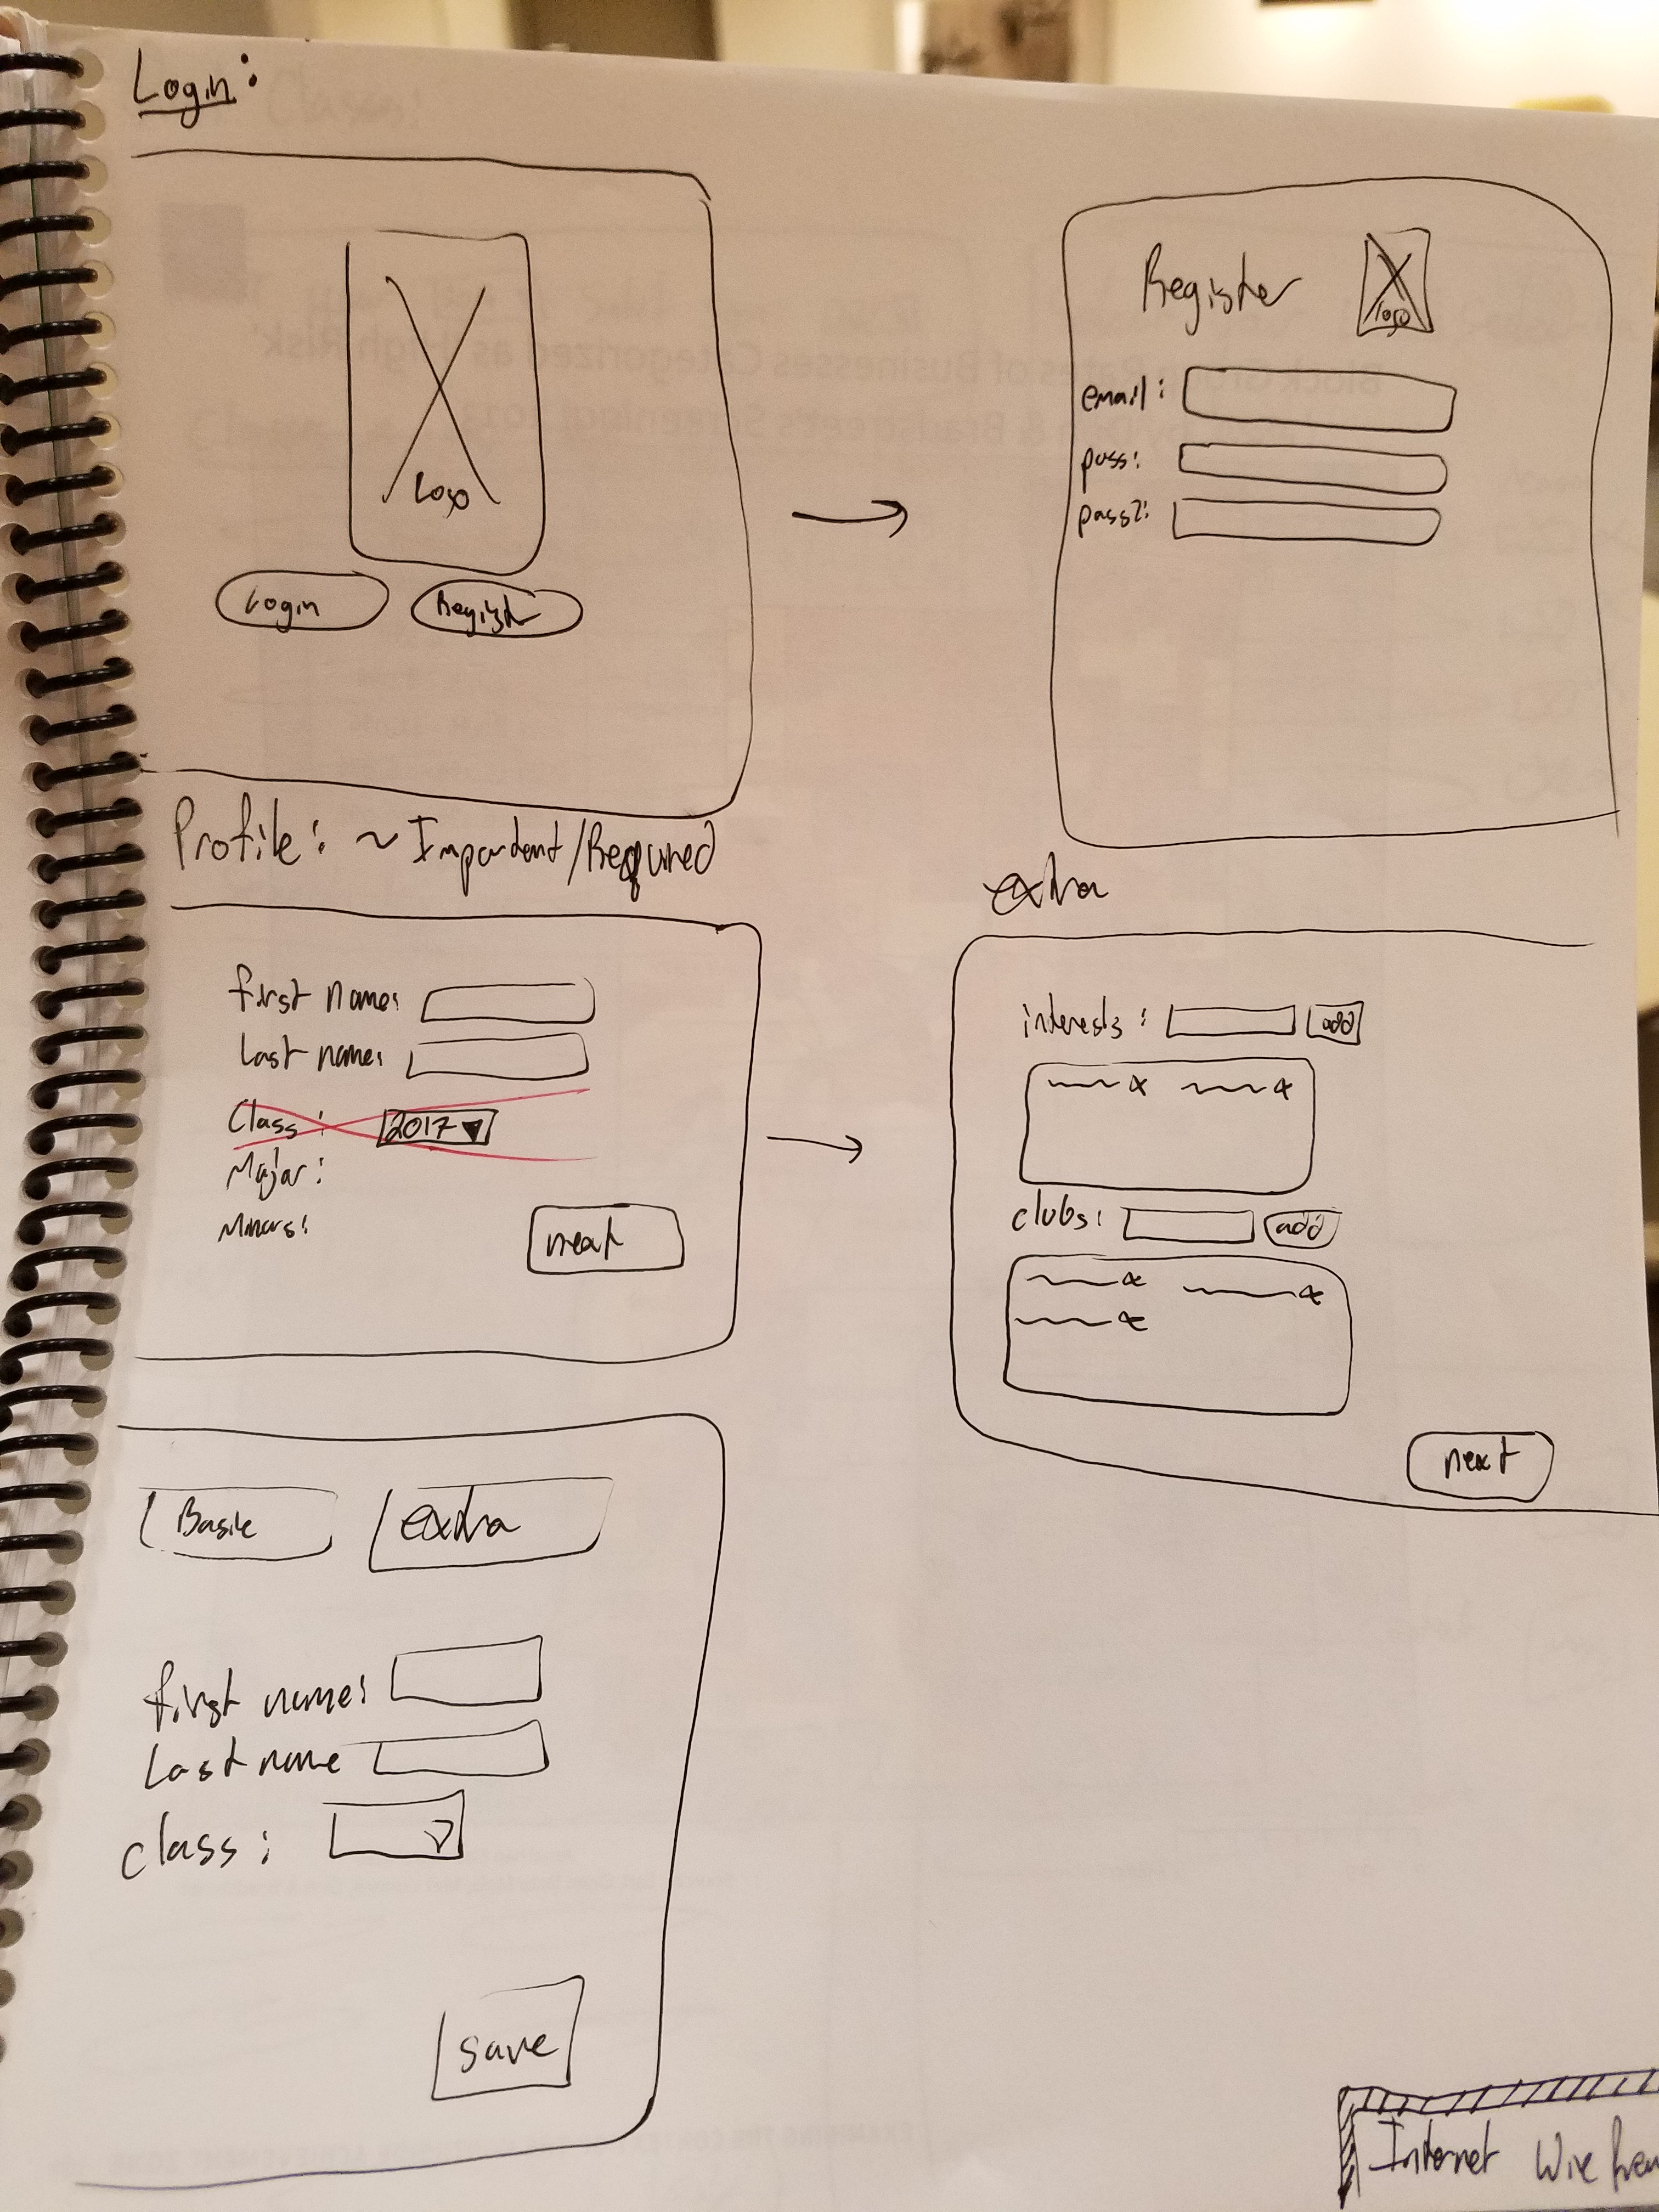 Login:
Logo
Login
Register
Register
logo
email:
pass:
pass2:
Profile: ~ Important/Required
first name:
last name:
Class: 2017
Major:
Minors:
next
extra
interests: add
clubs: add
next
Basic
extra
first name:
last name
class:
save
Internet Wire